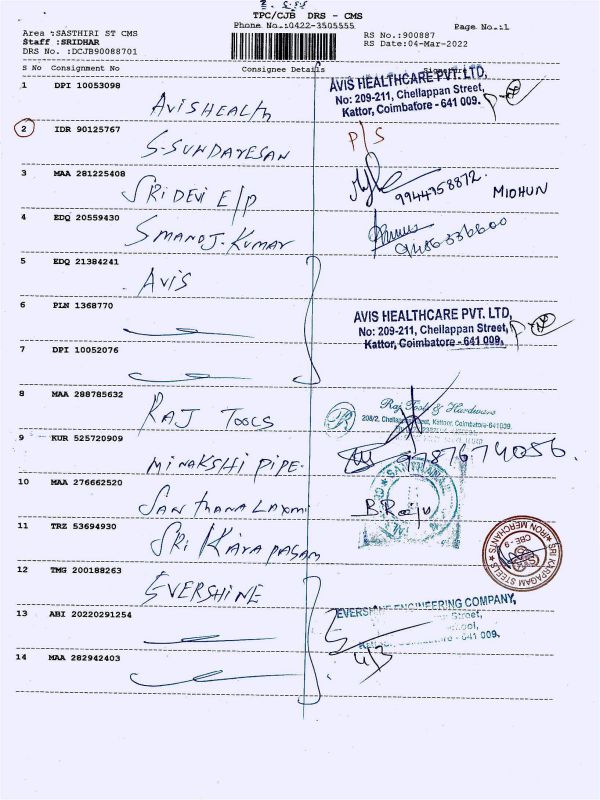 TPC/CJB DRS - CMS
Phone No.:0422-3505555
Page No.:1
Area :SASTHIRI ST CMS
Staff :SRIDHAR
DRS No. :DCJB90088701
RS No.:900887
RS Date:04-Mar-2022
S No Consignment No Consignee Details
1 DPI 10053098
AVISHEALTH
AVIS HEALTHCARE PVT. LTD,
No: 209-211, Chellappan Street,
Kattor, Coimbatore - 641 009.
2 IDR 90125767
S-SUNDARESAN
P/S
3 MAA 281225408
SRI DEVI E/P
9944758872.
MIDHUN
4 EDQ 20559430
S MANOJ. KUMAR
5 EDQ 21384241
AVIS
6 PLN 1368770
AVIS HEALTHCARE PVT. LTD,
No: 209-211, Chellappan Street,
Kattor, Coimbatore - 641 009.
7 DPI 10052076
8 MAA 288785632
RAJ TOOLS
Raj Tools & Hardware
208/2, Chellappan Street, Kattoor, Coimbatore-641009.
9 KUR 525720909
MINAKSHI PIPE.
9787674056.
10 MAA 276662520
SANTHANA LAXMI
B. Raiju
11 TRZ 53694930
SRI KARAPAGAM
SRI KARPAGAM STEELS
IRON MERCHANTS
CBE-9
12 TMG 200188263
EVERSHINE
EVERSHINE ENGINEERING COMPANY,
Street,
Coimbatore - 641 009.
13 ABI 20220291254
4/3
14 MAA 282942403